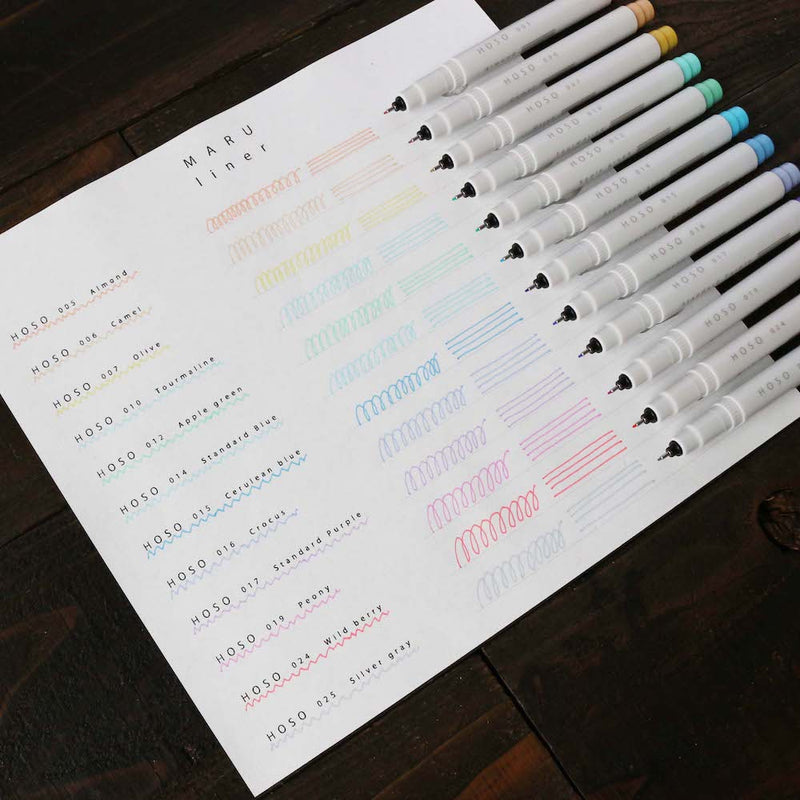 MARU
liner
HOSO 005 Almond
HOSO 006 Camel
HOSO 007 Olive
HOSO 010 Tourmaline
HOSO 012 Apple green
HOSO 014 Standard Blue
HOSO 015 Cerulean blue
HOSO 016 Crocus
HOSO 017 Standard Purple
HOSO 019 Peony
HOSO 024 Wild berry
HOSO 025 Silver gray
HOSO 005
HOSO 006
HOSO 007
HOSO 010
HOSO 012
HOSO 014
HOSO 015
HOSO 016
HOSO 017
HOSO 019
HOSO 024
HOSO